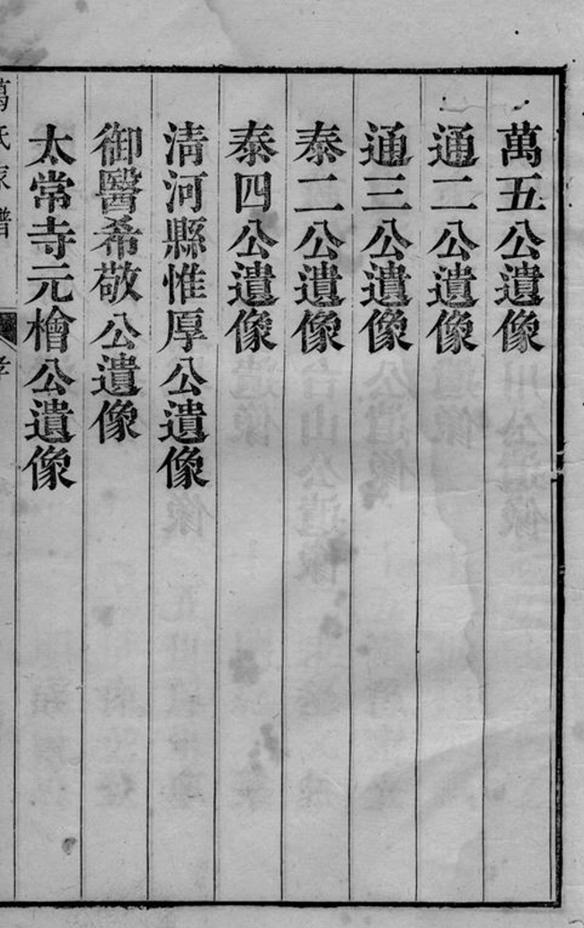 萬五公遺像
通二公遺像
通三公遺像
泰二公遺像
泰四公遺像
清河縣惟厚公遺像
御醫希敬公遺像
太常寺元檜公遺像
萬氏家譜